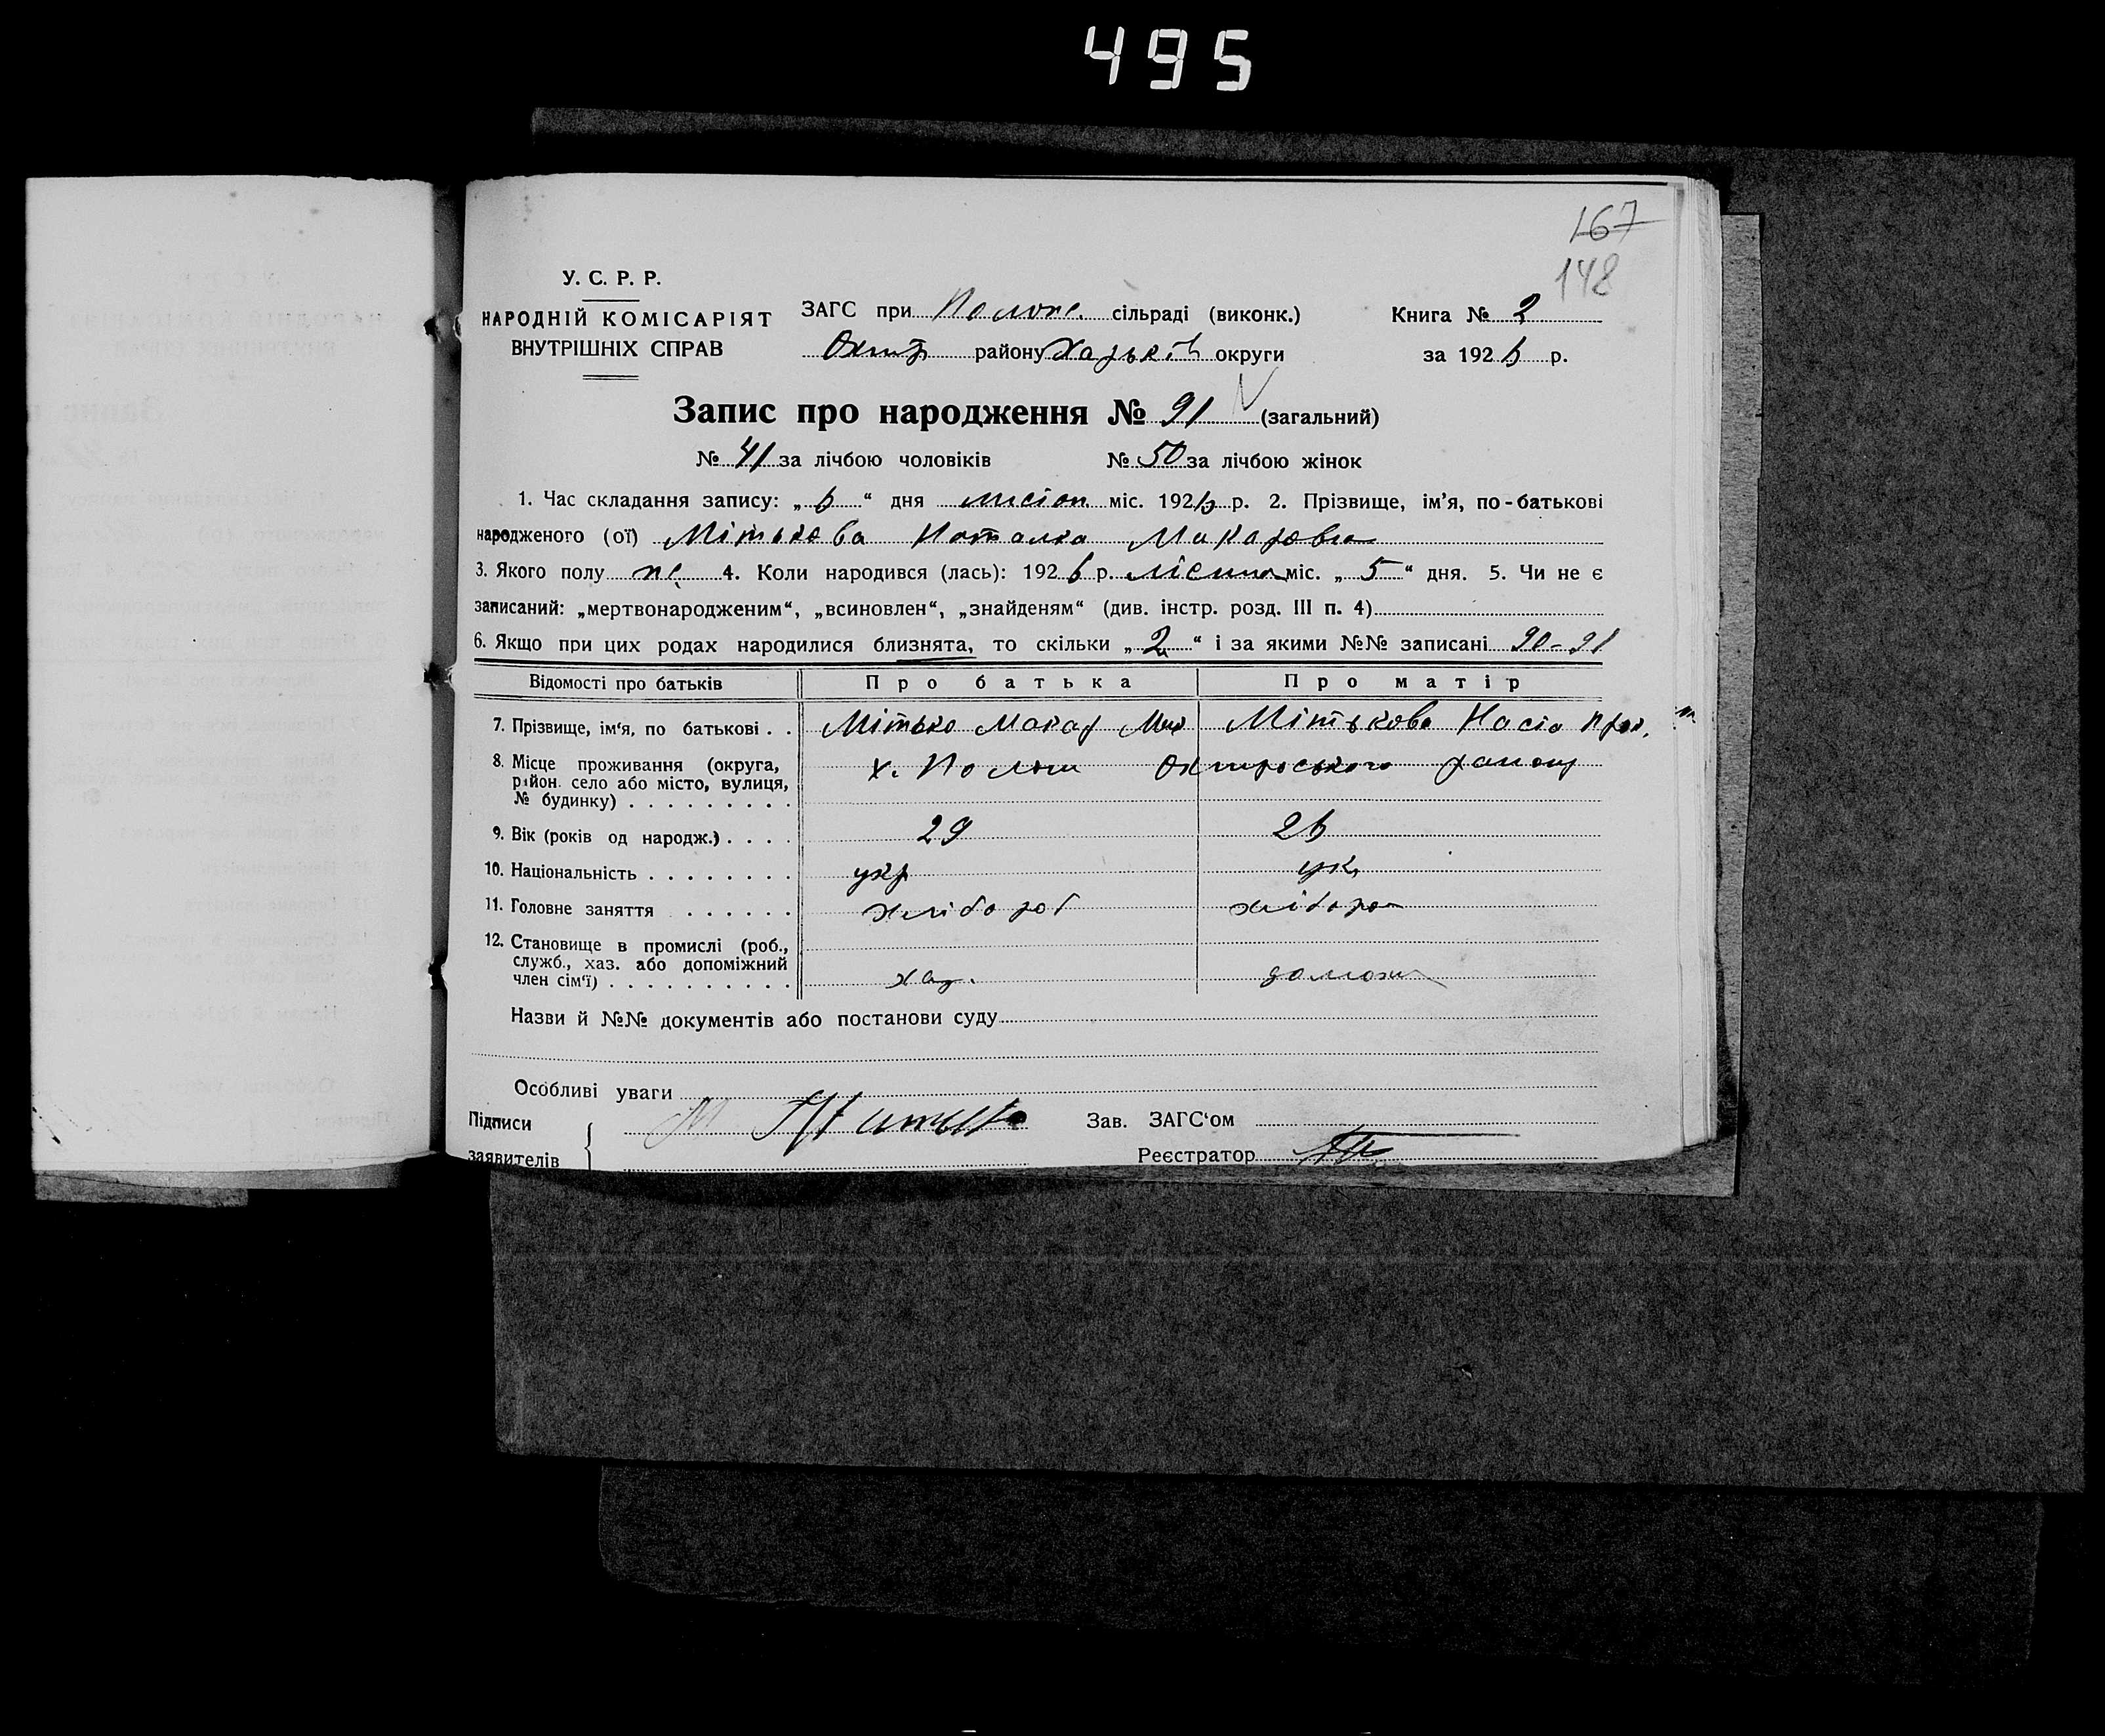 495
167
148
У. С. Р. Р.
НАРОДНІЙ КОМІСАРІЯТ
ВНУТРІШНІХ СПРАВ
ЗАГС при сільраді (виконк.)
Охт району Харьків округи
Книга № 2
за 1926 р.
Запис про народження № 91 (загальний)
№ 41 за лічбою чоловіків № 50 за лічбою жінок
1. Час складання запису: „ 6 “ дня міс. 1926 р. 2. Прізвище, ім’я, по-батькові
народженого (ої) Мітькова Наталка Макаровна
3. Якого полу 4. Коли народився (лась): 1926 р. міс. „ 5 “ дня. 5. Чи не є
записаний: „мертвонародженим“, „всиновлен“, „знайденям“ (див. інстр. розд. III п. 4)
6. Якщо при цих родах народилися близнята, то скільки „ 2 “ і за якими №№ записані 90-91
Відомості про батьків Про батька Про матір
7. Прізвище, ім‘я, по батькові . . Мітько Макар Мит Мітькова Настя
8. Місце проживання (округа, район. село або місто, вулиця, № будинку) . . . . . . . . . х. Охтироського району
9. Вік (років од народж.) . . . . 29 26
10. Національність . . . . . . . . укр ук,
11. Головне заняття . . . . . . хлібороб хлібороб
12. Становище в промислі (роб., служб., хаз. або допоміжний член сім‘ї) . . . . . . . . . . хаз.
Назви й №№ документів або постанови суду
Особливі уваги
Підписи
заявителів
Зав. ЗАГС‘ом
Реєстратор